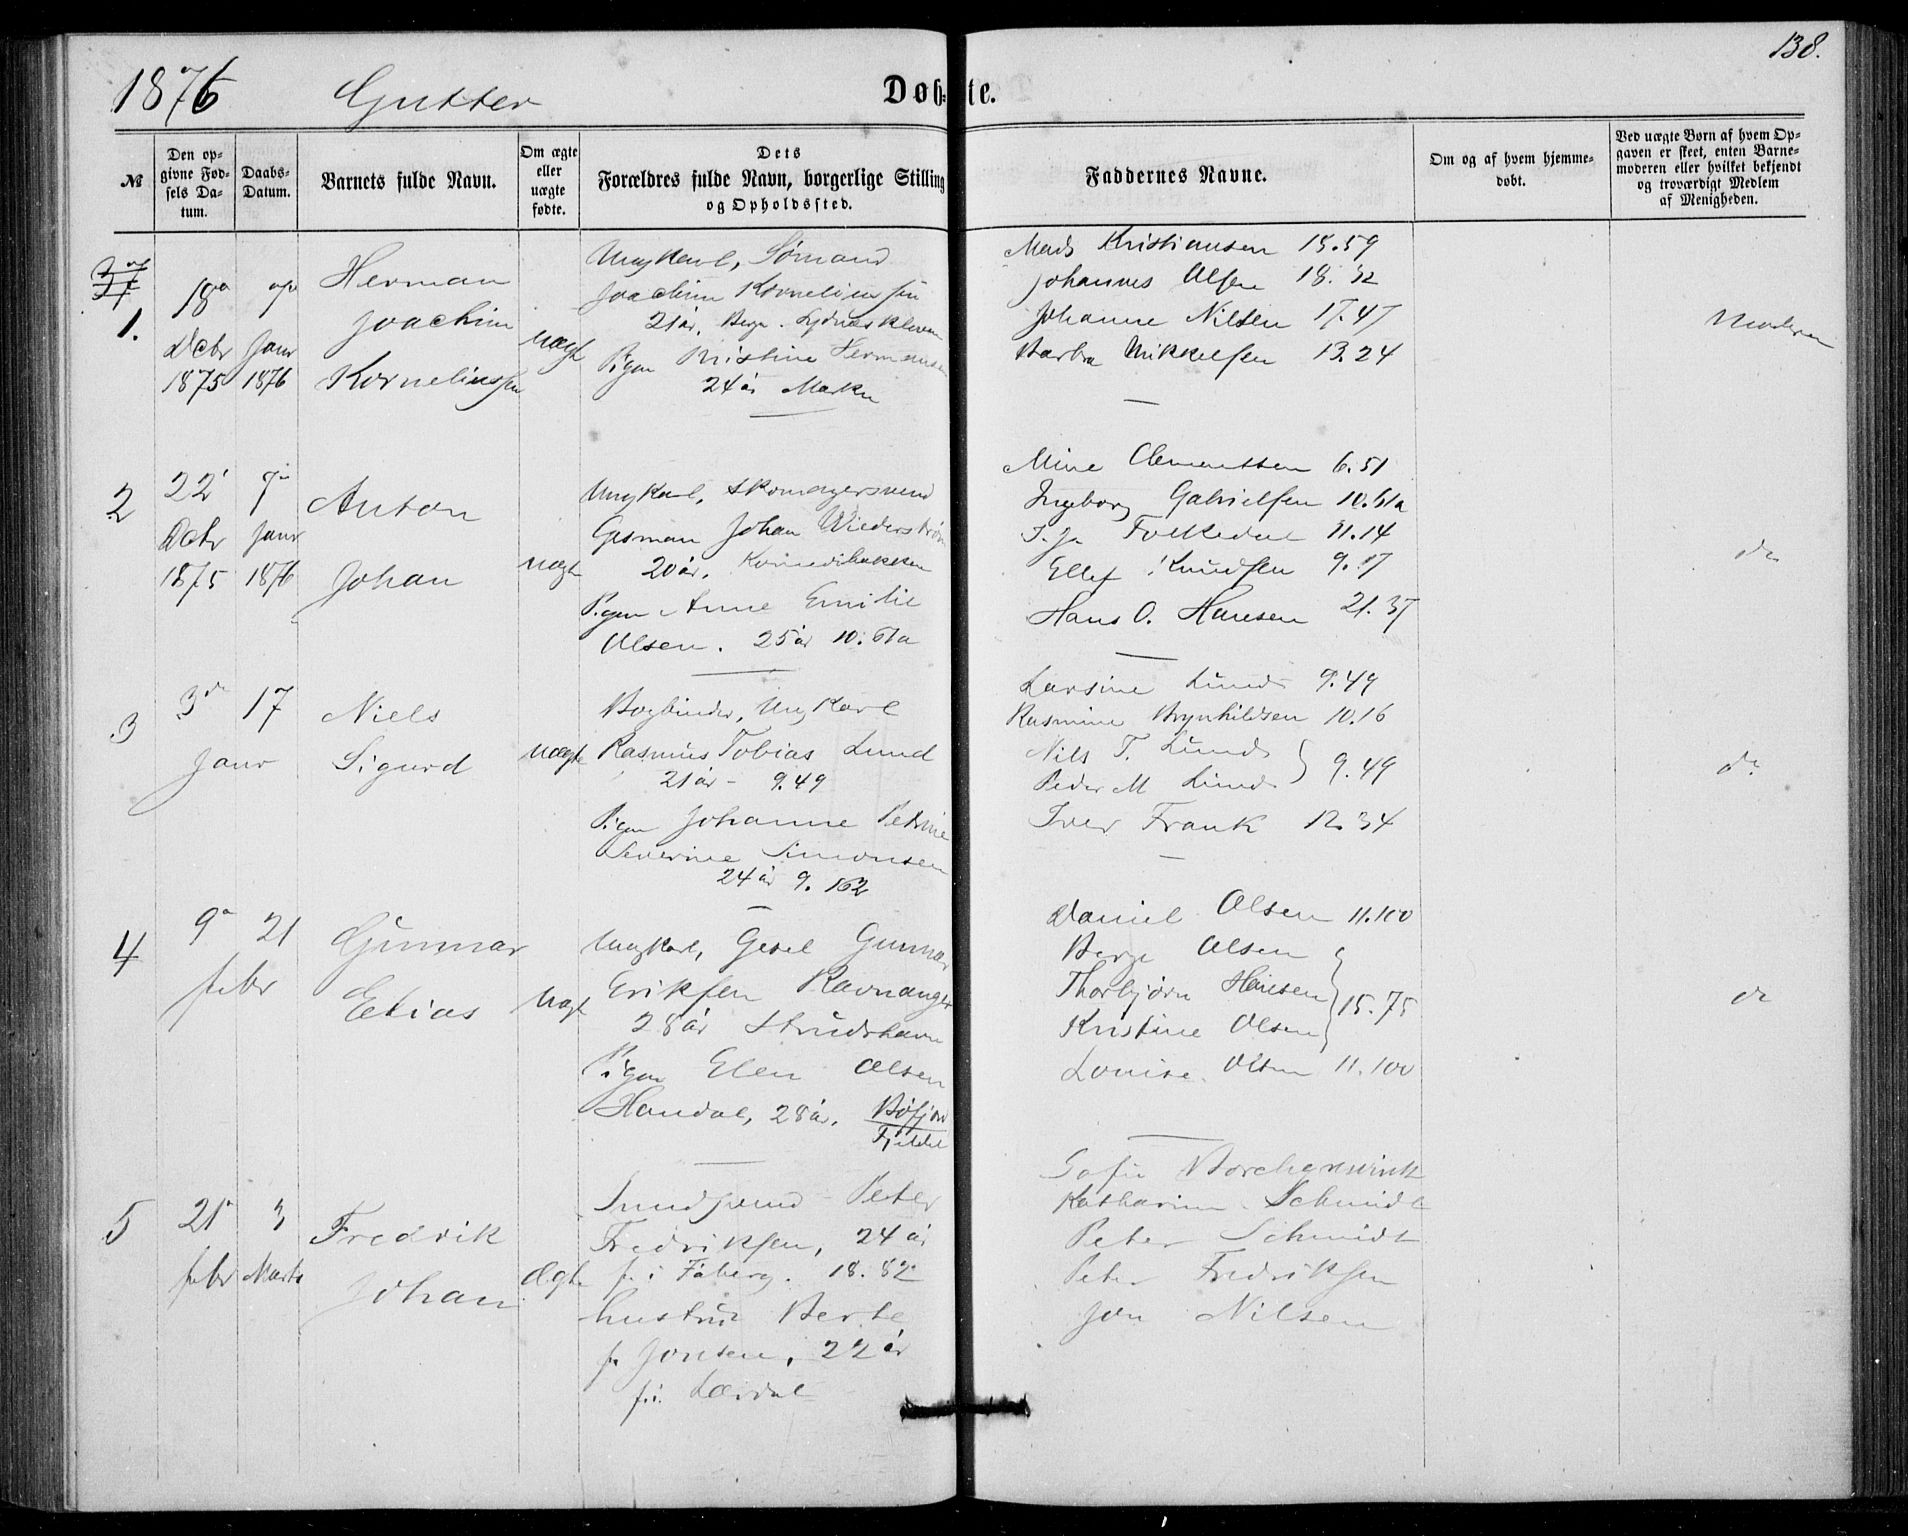 138.
1876 Gutter Døb-te.
№
Den op-
givne Fød-
sels Da-
tum.
Daabs-
Datum.
Barnets fulde Navn.
Om ægte
eller
uægte
fødte.
Dets
Forældres fulde Navn, borgerlige Stilling
og Opholdssted.
Faddernes Navne.
Om og af hvem hjemme-
døbt.
Ved uægte Børn af hvem Op-
gaven er skeet, enten Barne-
moderen eller hvilket bekjendt
og troværdigt Medlem
af Menigheden.
1.
18
Dcbr
1875
Janr
1876
Herman
Joachim
Kornelius sen
uægte
Ungkarl, Sømand
Joachim Kornelius sen
21 år.
Pigen Kristine Hermansen
24 år Marken
Mads Kristiansen 15.59
Johannes Olsen 18.32
Johanne Nilsen 17.47
Barbra Mikkelsen 13.24
Moderen
2
22
Dcbr
1875
7
Janr
1876
Anton
Johan
uægte
Ungkarl, Skomagersvend
Gesman Johan Wiederstrøm
20 år.
Pigen Anne Emilie
Olsen. 25 år 10.61a
Mine Clementsen 6.51
Ingeborg Gabrielsen 10.61a
Folkedal 11.14
Ellef Knudsen 9.17
Hans O. Hansen 21.37
do
3
3
Janr
17
Niels
Sigurd
uægte
Bogbinder, Ungkarl
Rasmus Tobias Lund
21 år - 9.49
Pigen Johanne Petrine
Severine Simonsen
24 år 9.162
Larsine Lund 9.49
Rasmine Brynhildsen 10.16
Nils T. Lund
Peder M Lund } 9.49
Iver Frank 12.34
do
4
9
febr
21
Gunnar
Elias
uægte
Ungkarl, Gesel Gunnar
Eriksen Ravnanger
28 år Strudshavn
Pigen Elen Olsen
Handal, 28 år.
Daniel Olsen 11.100
Berge Olsen
Thorbjørn Hansen } 15.75
Kristine Olsen
Louise Olsen 11.100
do
5
21
febr
3
Marts
Fredrik
Johan
Ægte
Peter
Fredriksen, 24 år
f. i Fåberg. 18.82
hustru Berte
f. Jonsen, 22 år
f.i. Lærdal
Sofie Borchgrevink
Katharine Schmidt
Peter Schmidt
Peter Fredriksen
Jon Nilsen